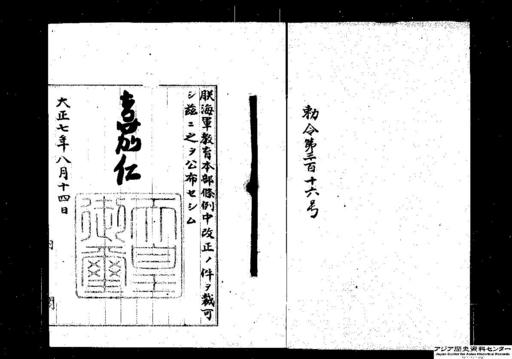 勅令第三百十六号
朕海軍教育本部條例中改正ノ件ヲ裁可
シ茲ニ之ヲ公布セシム
嘉仁
天皇
御璽
大正七年八月十四日
アジア歴史資料センター
Japan Center for Asian Historical Records